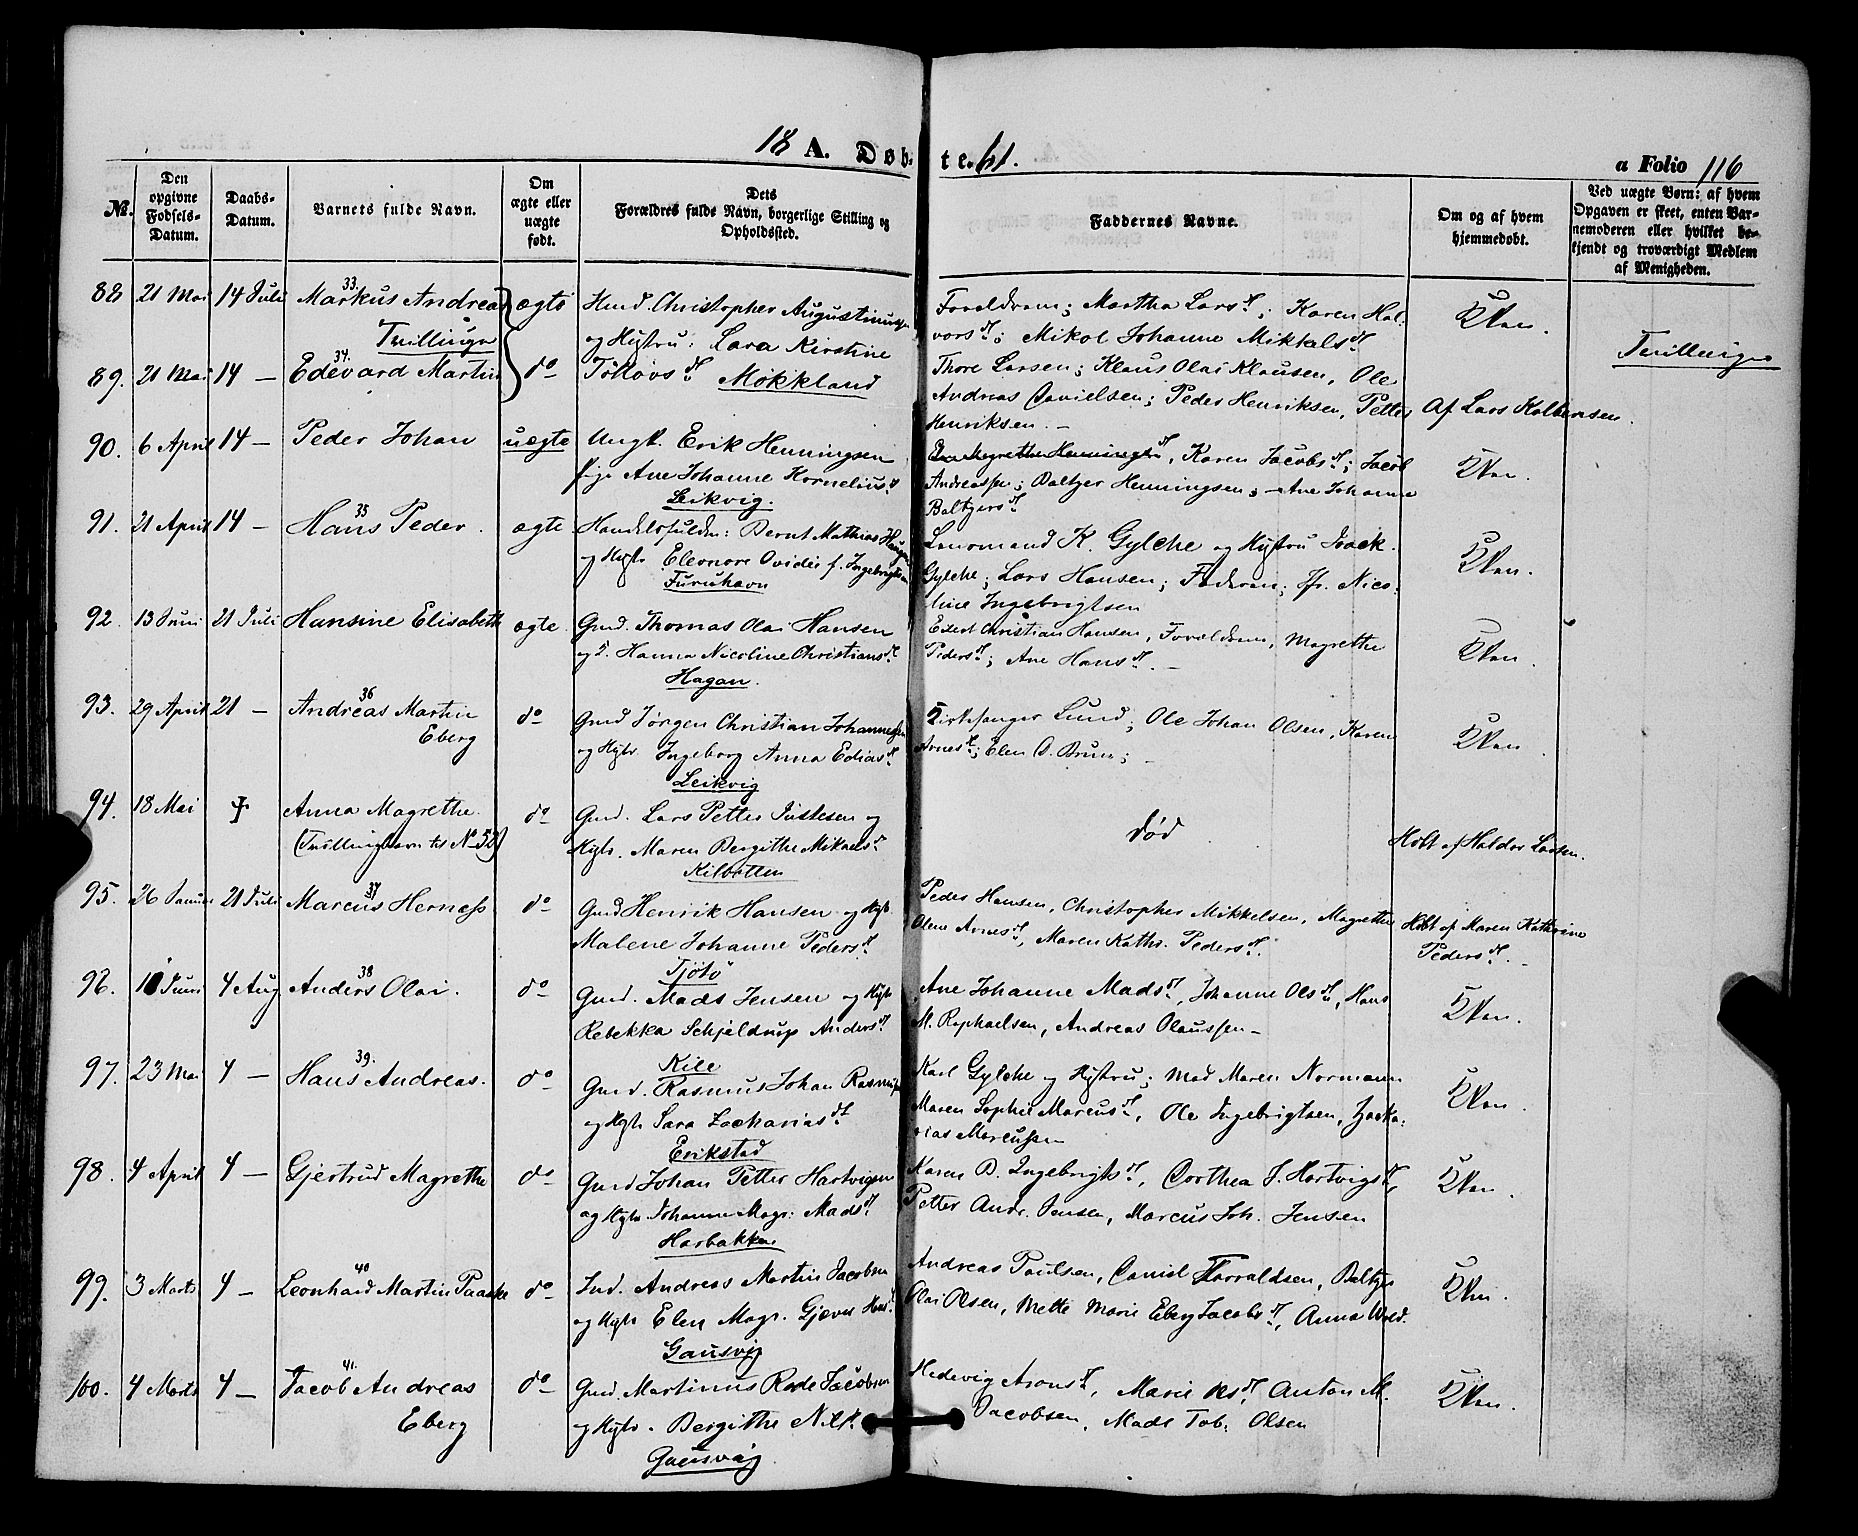 18 A. Døbte. 61.
a Folio 116
No.
Den opgivne Fødsels-Datum.
Daabs-Datum.
Barnets fulde Navn.
Om ægte eller uægte født.
Dets Forældres fulde Navn, borgerlige Stilling og Opholdssted.
Faddernes Navne.
Om og af hvem hjemmedøbt.
Ved uægte Børn: af hvem Opgaven er skeet, enten Barnemoderen eller hvilket bekjendt og troværdigt Medlem af Menigheden.
88 21 Mai 14 Juli 33. Markus Andreas ægte Hmd. Christopher Augustinussen
Tvillinger og Hustru: Lara Kirstine
Forældrene; Martha Larsd.; Karen Hal-
vorsd.; Mikol Johanne Mikkelsd.
Kken.
Tvillinger
89. 21 Mai 14 — 34. Edevard Martin do Tollovsd. Møkkland
Thore Larsen; Klaus Olai Klausen, Ole
Andreas Danielsen; Peder Henriksen, Petter
Henriksen. —
Af Lars Kolbensen.
90. 6 April 14 — Peder Johan uægte Ungk. Erik Henningsen
pige Ane Johanne Korneliusd.
Leikvig.
Magrethe Henningsd., Karen Jacobsd.; Jacob
Andreassen; Baltzer Henningsen; — Ane Johanne
Baltzersd.
Kken.
91. 21 April 14 — 35 Hans Peder. ægte Handelsfuldm: Bernt Mathias Haugen
og Hustr Eleonore Ovidie f. Ingebrigtsen
Furuhavn
Lensmand K. Gylche og Hustru
Gylche; Lars Hansen; Faderen; Jfr. Nico-
line Ingebrigtsen
Kken.
92. 13 Juni 21 Juli Hansine Elisabeth ægte Gmd. Thomas Olai Hansen
og H. Hanna Nicoline Christiansd.
Hagan.
Edert Christian Hansen, Forældrene, Magrethe
Pedersd.; Ane Hansd. —
Kken.
93. 29 April 21 — 36 Andreas Martin do Gmd Jørgen Christian Johannessen
Eberg og Hustr. Ingeborg Anna Ediasd.
Leikvig
Kirkesanger Lund; Ole Johan Olsen, Karen
Arnesd.; Elen O. Bruun; —
Kken
94. 18 Mai Anna Magrethe. do Gmd. Lars Petter Justesen og
(Tvillingbarn til No 52) Hustr. Maren Bergithe Mikaelsd.
Kilbotten
død
Hdbt af Haldor Larsen.
95. 26 Januar 21 Juli 37 Marcus Hernæss do Gmd Henrik Hansen og Hustr
Malene Johanne Pedersd.
Tjøtø
Peder Hansen, Christopher Mikkelsen, Magrethe
Olene Arnesd., Maren Kathr. Pedersd.
Hdbt af Maren Kathrine
Pedersd. —
96. 10 Juni 4 Aug 38 Anders Olai. do Gmd. Mads Jensen og Hustr
Rebekka Schjeldrup Andersd.
Kile
Ane Johanne Madsd., Johanne Olsd., Hans
M. Raphaelsen, Andreas Olaussen —
Kken.
97. 23 Mai 4 — 39. Hans Andreas. do Gmd. Rasmus Johan Rasmussen
og Hustr Sara Zachariasd.
Erikstad
Karl Gylche og Hustru; Mad Maren Normann
Maren Sophie Marcusd., Ole Ingebrigtsen, Zacka-
rias Marcussen
Kken.
98. 4 April 4 — Gjertrud Magrethe do Gmd Johan Petter Hartvigsen
og Hustr Johanna Magr: Madsd.
Harbakken
Karen B. Ingebrigtsd., Dorthea J. Hartvigsd,
Petter Andr. Jensen, Marcus Joh. Jensen
Kken.
99. 3 Marts 4 — 40 Leonhard Martin Paaske do Ind. Andreas Martin Jacobsen
og Hustr Elen Magr. Gjæver
Gausvig
Andreas Paulsen, Daniel Harraldsen, Baltzer
Olai Olsen, Mette Marie Eberg Jacobsd., Anna Wold.
Kken.
100. 4 Marts 4 — 41. Jacob Andreas do Gmd. Martinus Rode Jacobsen
Eberg og Hustr. Bergithe Nilsd.
Gausvig.
Hedevig Aronsd., Marie Olsd, Anton M.
Jacobsen, Mads Tob: Olsen
Kken.